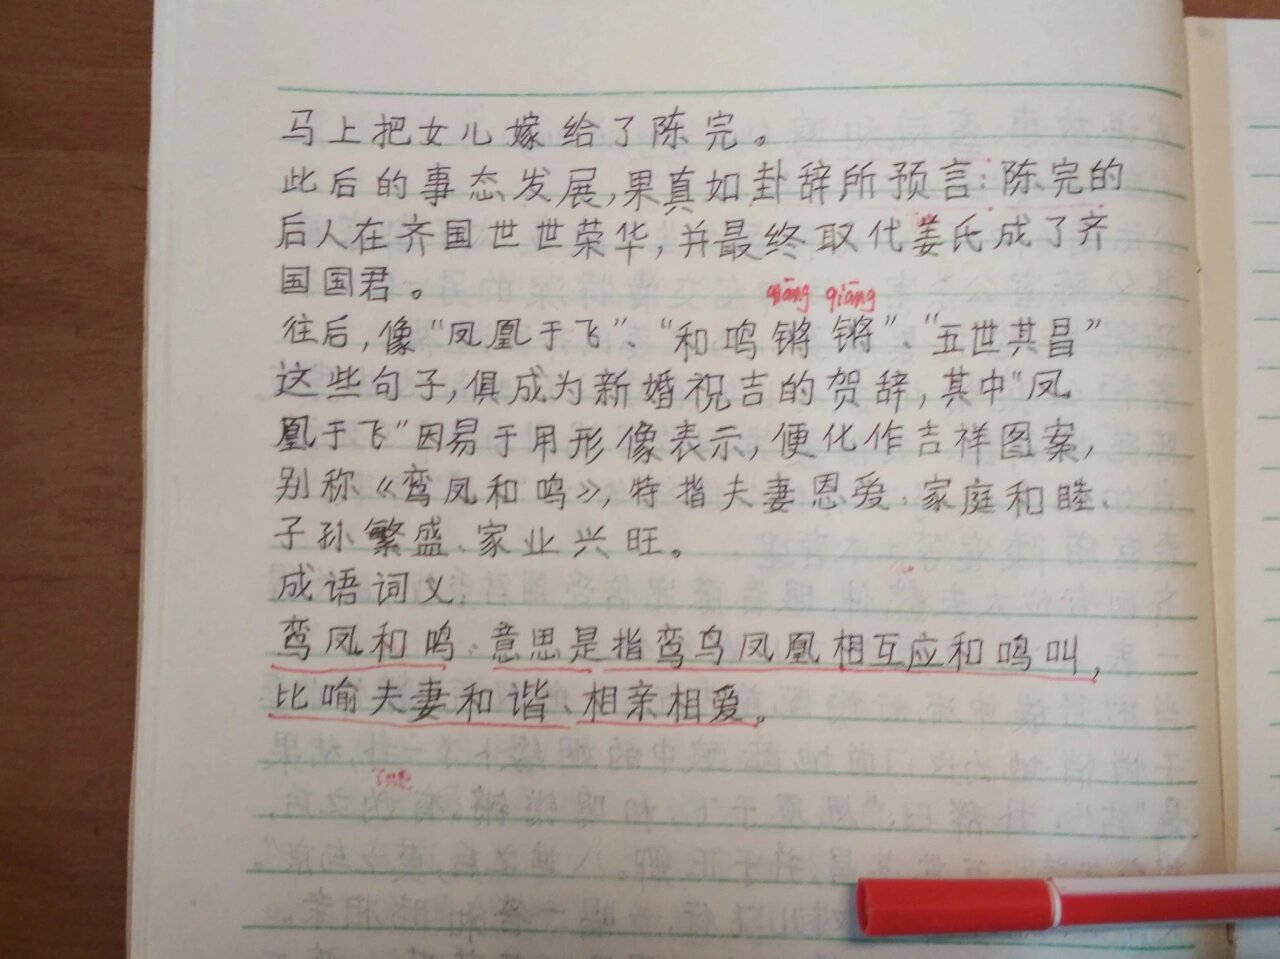 马上把女儿嫁给了陈完。
此后的事态发展,果真如卦辞所预言:陈完的
后人在齐国世世荣华,并最终取代姜氏成了齐
国国君。
qiāng qiāng
往后,像“凤凰于飞”、“和鸣锵锵”、“五世其昌”
这些句子,俱成为新婚祝吉的贺辞,其中“凤
凰于飞”因易于用形像表示,便化作吉祥图案,
别称《鸾凤和鸣》,特指夫妻恩爱、家庭和睦、
子孙繁盛、家业兴旺。
成语词义:
鸾凤和鸣:意思是指鸾鸟凤凰相互应和鸣叫,
比喻夫妻和谐、相亲相爱。